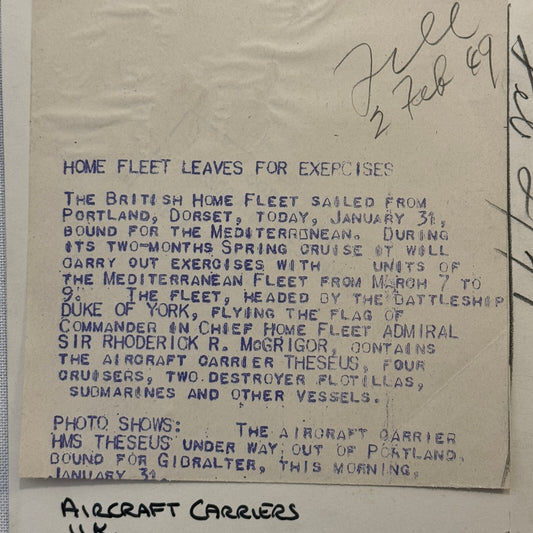 2 Feb 49
HOME FLEET LEAVES FOR EXERCISES
THE BRITISH HOME FLEET SAILED FROM
PORTLAND, DORSET, TODAY, JANUARY 31,
BOUND FOR THE MEDITERRANEAN. DURING
ITS TWO-MONTHS SPRING CRUISE IT WILL
CARRY OUT EXERCISES WITH UNITS OF
THE MEDITERRANEAN FLEET FROM MARCH 7 TO
9. THE FLEET, HEADED BY THE BATTLESHIP
DUKE OF YORK, FLYING THE FLAG OF
COMMANDER IN CHIEF HOME FLEET ADMIRAL
SIR RHODERICK R. MCGRIGOR, CONTAINS
THE AIRCRAFT CARRIER THESEUS, FOUR
CRUISERS, TWO DESTROYER FLOTILLAS,
SUBMARINES AND OTHER VESSELS.
PHOTO SHOWS: THE AIRCRAFT CARRIER
HMS THESEUS UNDER WAY, OUT OF PORTLAND,
BOUND FOR GIBRALTER, THIS MORNING,
JANUARY 31.
AIRCRAFT CARRIERS
U.K.